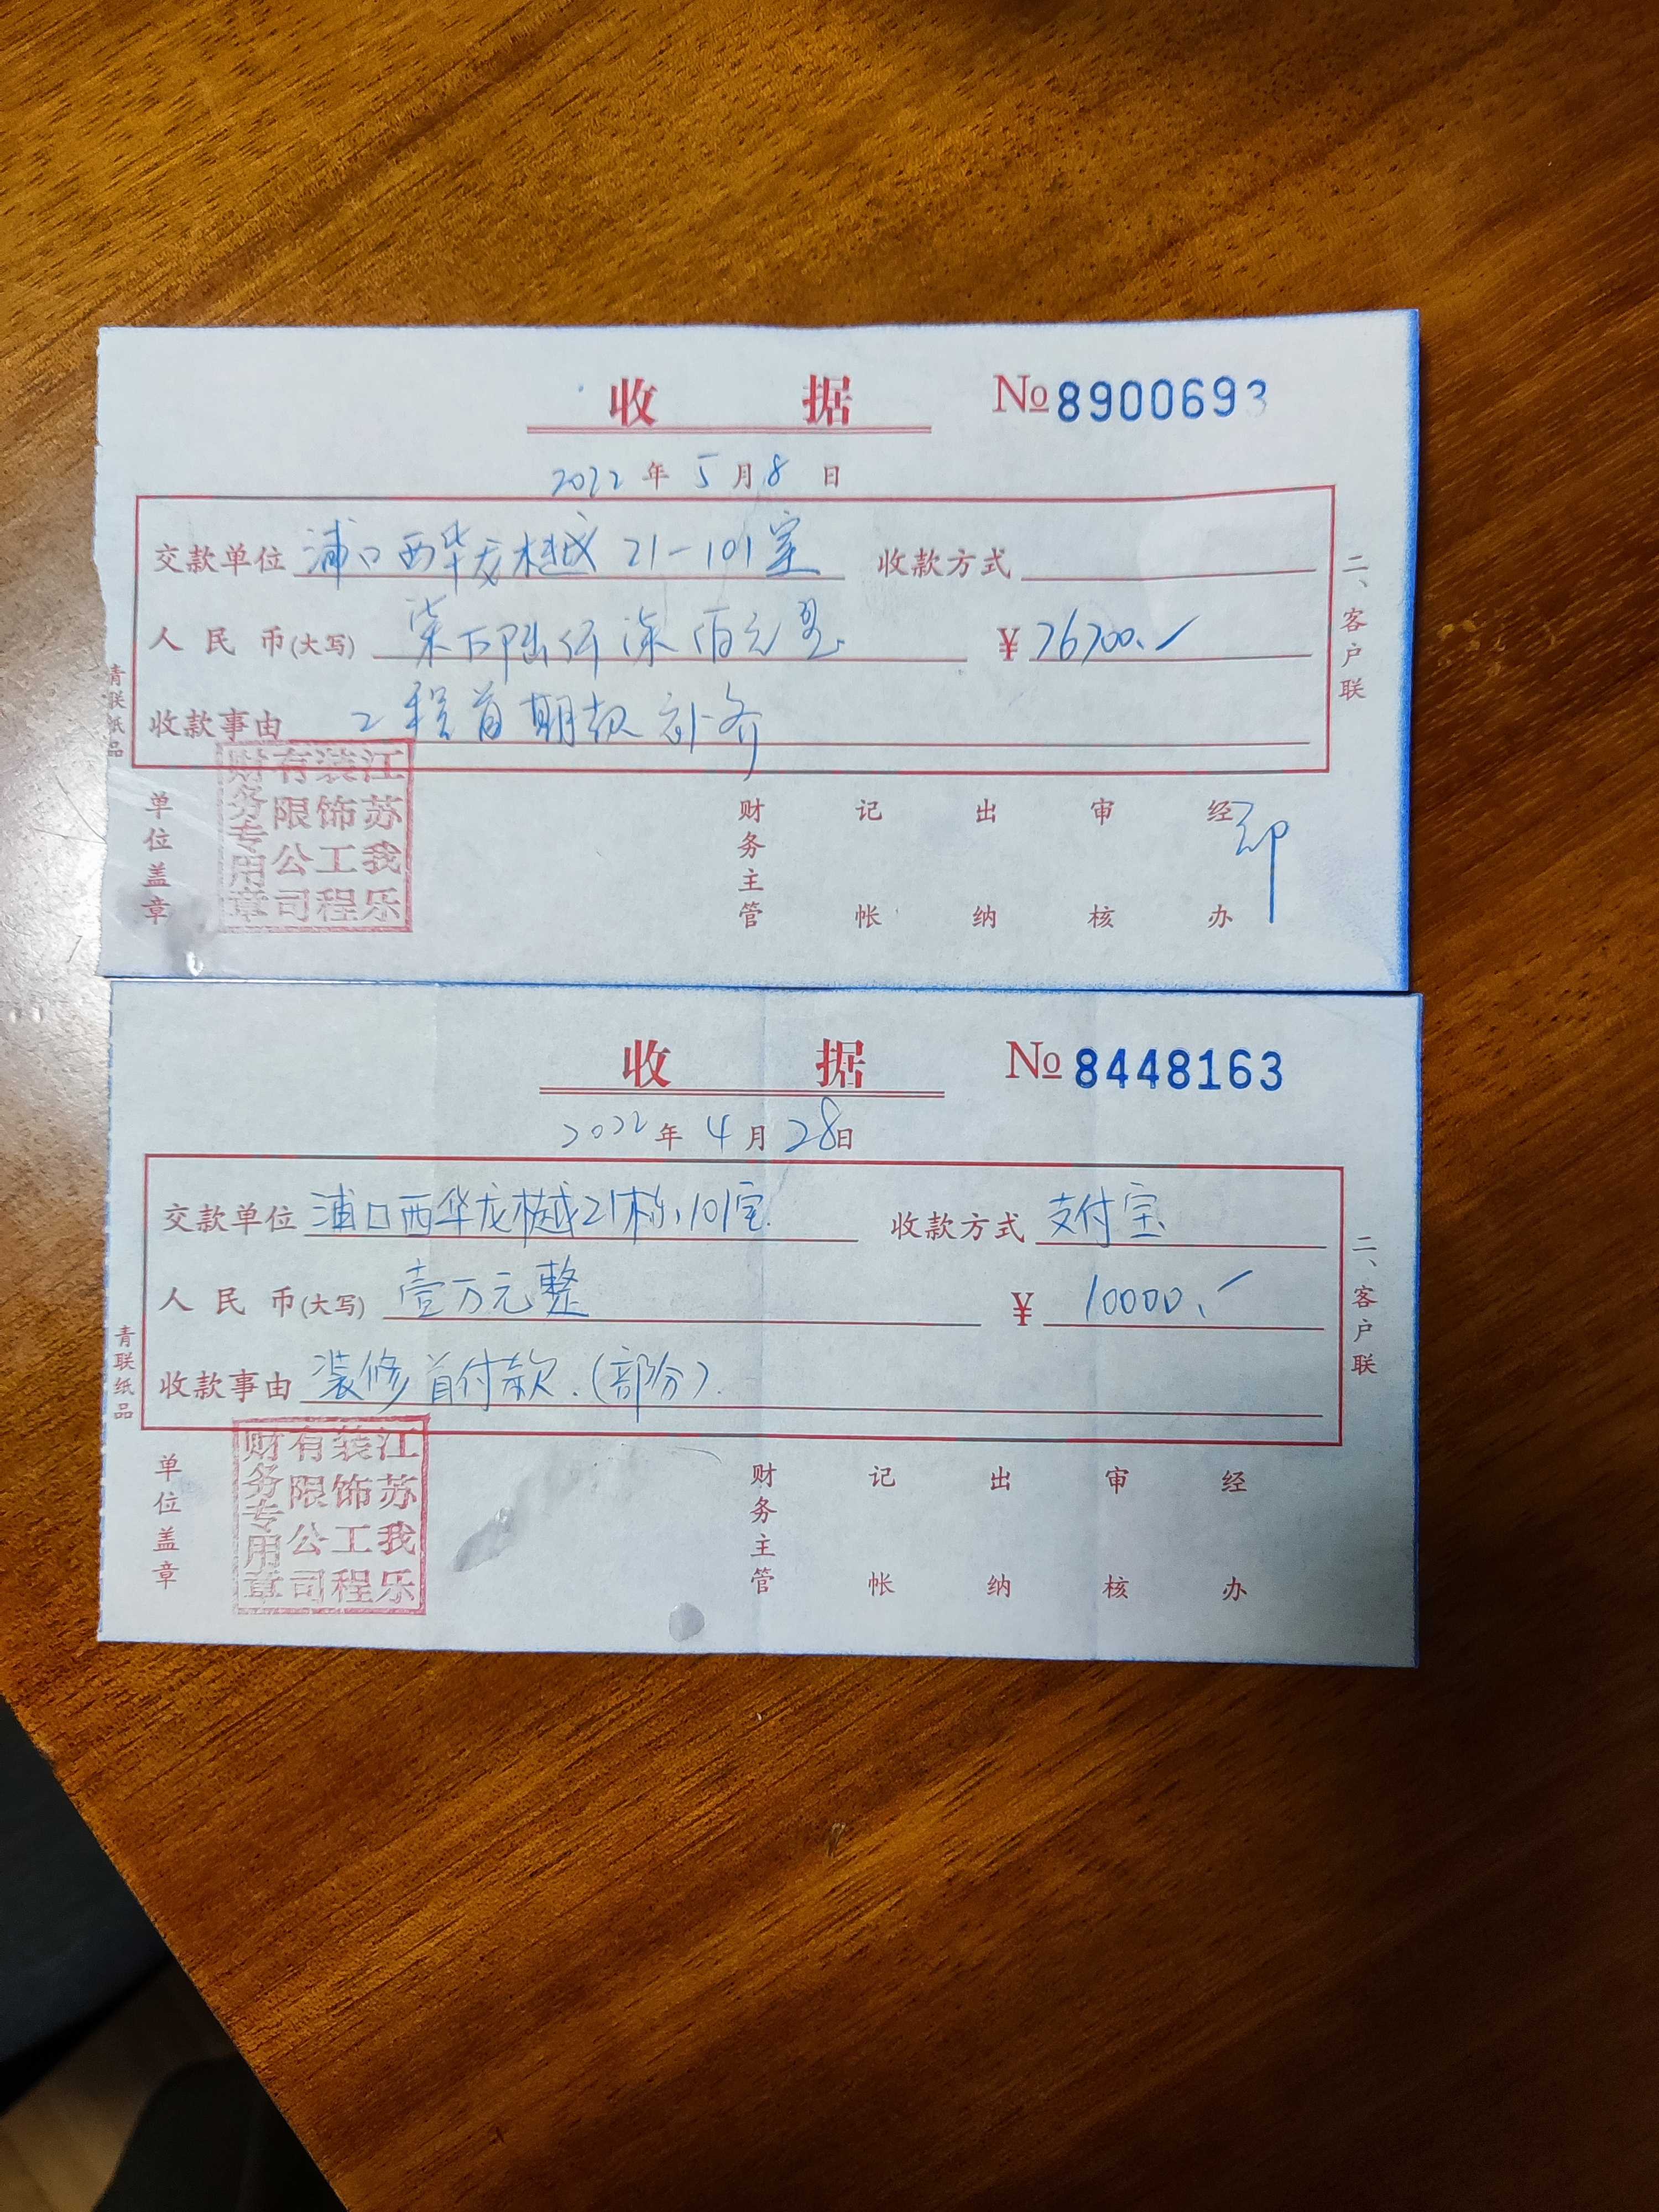 收 据 №8900693
2022年5月8日
交款单位 浦口西华龙樾21-101室 收款方式
人民币(大写) 柒万陆仟柒佰元整 ¥76700.
收款事由 工程首期款补齐
单位盖章 财务主管 记帐 出纳 审核 经办
江苏我乐装饰工程有限公司财务专用章
二、客户联
青联纸品
收 据 №8448163
2022年4月28日
交款单位 浦口西华龙樾21栋.101室. 收款方式 支付宝
人民币(大写) 壹万元整 ¥ 10000.
收款事由 装修首付款.(部分).
单位盖章 财务主管 记帐 出纳 审核 经办
江苏我乐装饰工程有限公司财务专用章
二、客户联
青联纸品